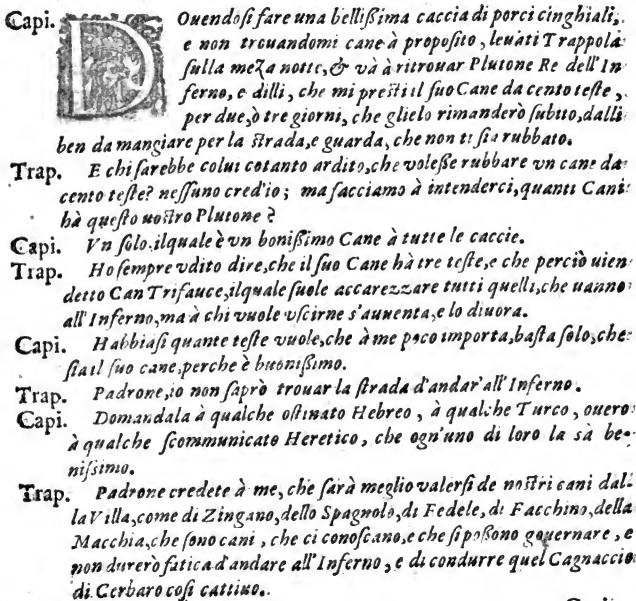 Capi. DOuendosi fare una bellißima caccia di porci cinghiali,
e non trouandomi cane à proposito, leuati Trappola
sulla meza notte, & và à ritrouar Plutone Re dell'In
ferno, e dilli, che mi presti il suo Cane da cento teste,
per due, ò tre giorni, che glielo rimanderò subito, dalli
ben da mangiare per la strada, e guarda, che non ti sia rubbato.
Trap. E chi sarebbe colui cotanto ardito, che voleße rubbare vn cane da
cento teste? nessuno cred'io; ma facciamo à intenderci, quanti Cani
hà questo uostro Plutone?
Capi. Vn solo, ilquale è vn bonißimo Cane à tutte le caccie.
Trap. Ho sempre vdito dire, che il suo Cane hà tre teste, e che perciò uien
detto Can Trifauce, ilquale suole accarezzare tutti quelli, che uanno
all'Inferno, ma à chi vuole vscirne s'auuenta, e lo diuora.
Capi. Habbiasi quante teste vuole, che à me poco importa, basta solo, che
sia il suo cane, perche è buonißimo.
Trap. Padrone, io non saprò trouar la strada d'andar'all'Inferno.
Capi. Domandala à qualche ostinato Hebreo, à qualche Turco, ouero
à qualche scommunicato Heretico, che ogn'uno di loro la sà be-
nissimo.
Trap. Padrone credete à me, che sarà meglio valersi de nostri cani dal-
la Villa, come di Zingano, dello Spagnolo, di Fedele, di Facchino, della
Macchia, che sono cani, che ci conoscano, e che si poßono gouernare, e
non durerò fatica d'andare all'Inferno, e di condurre quel Cagnaccio
di Cerbaro cosi cattiuo.